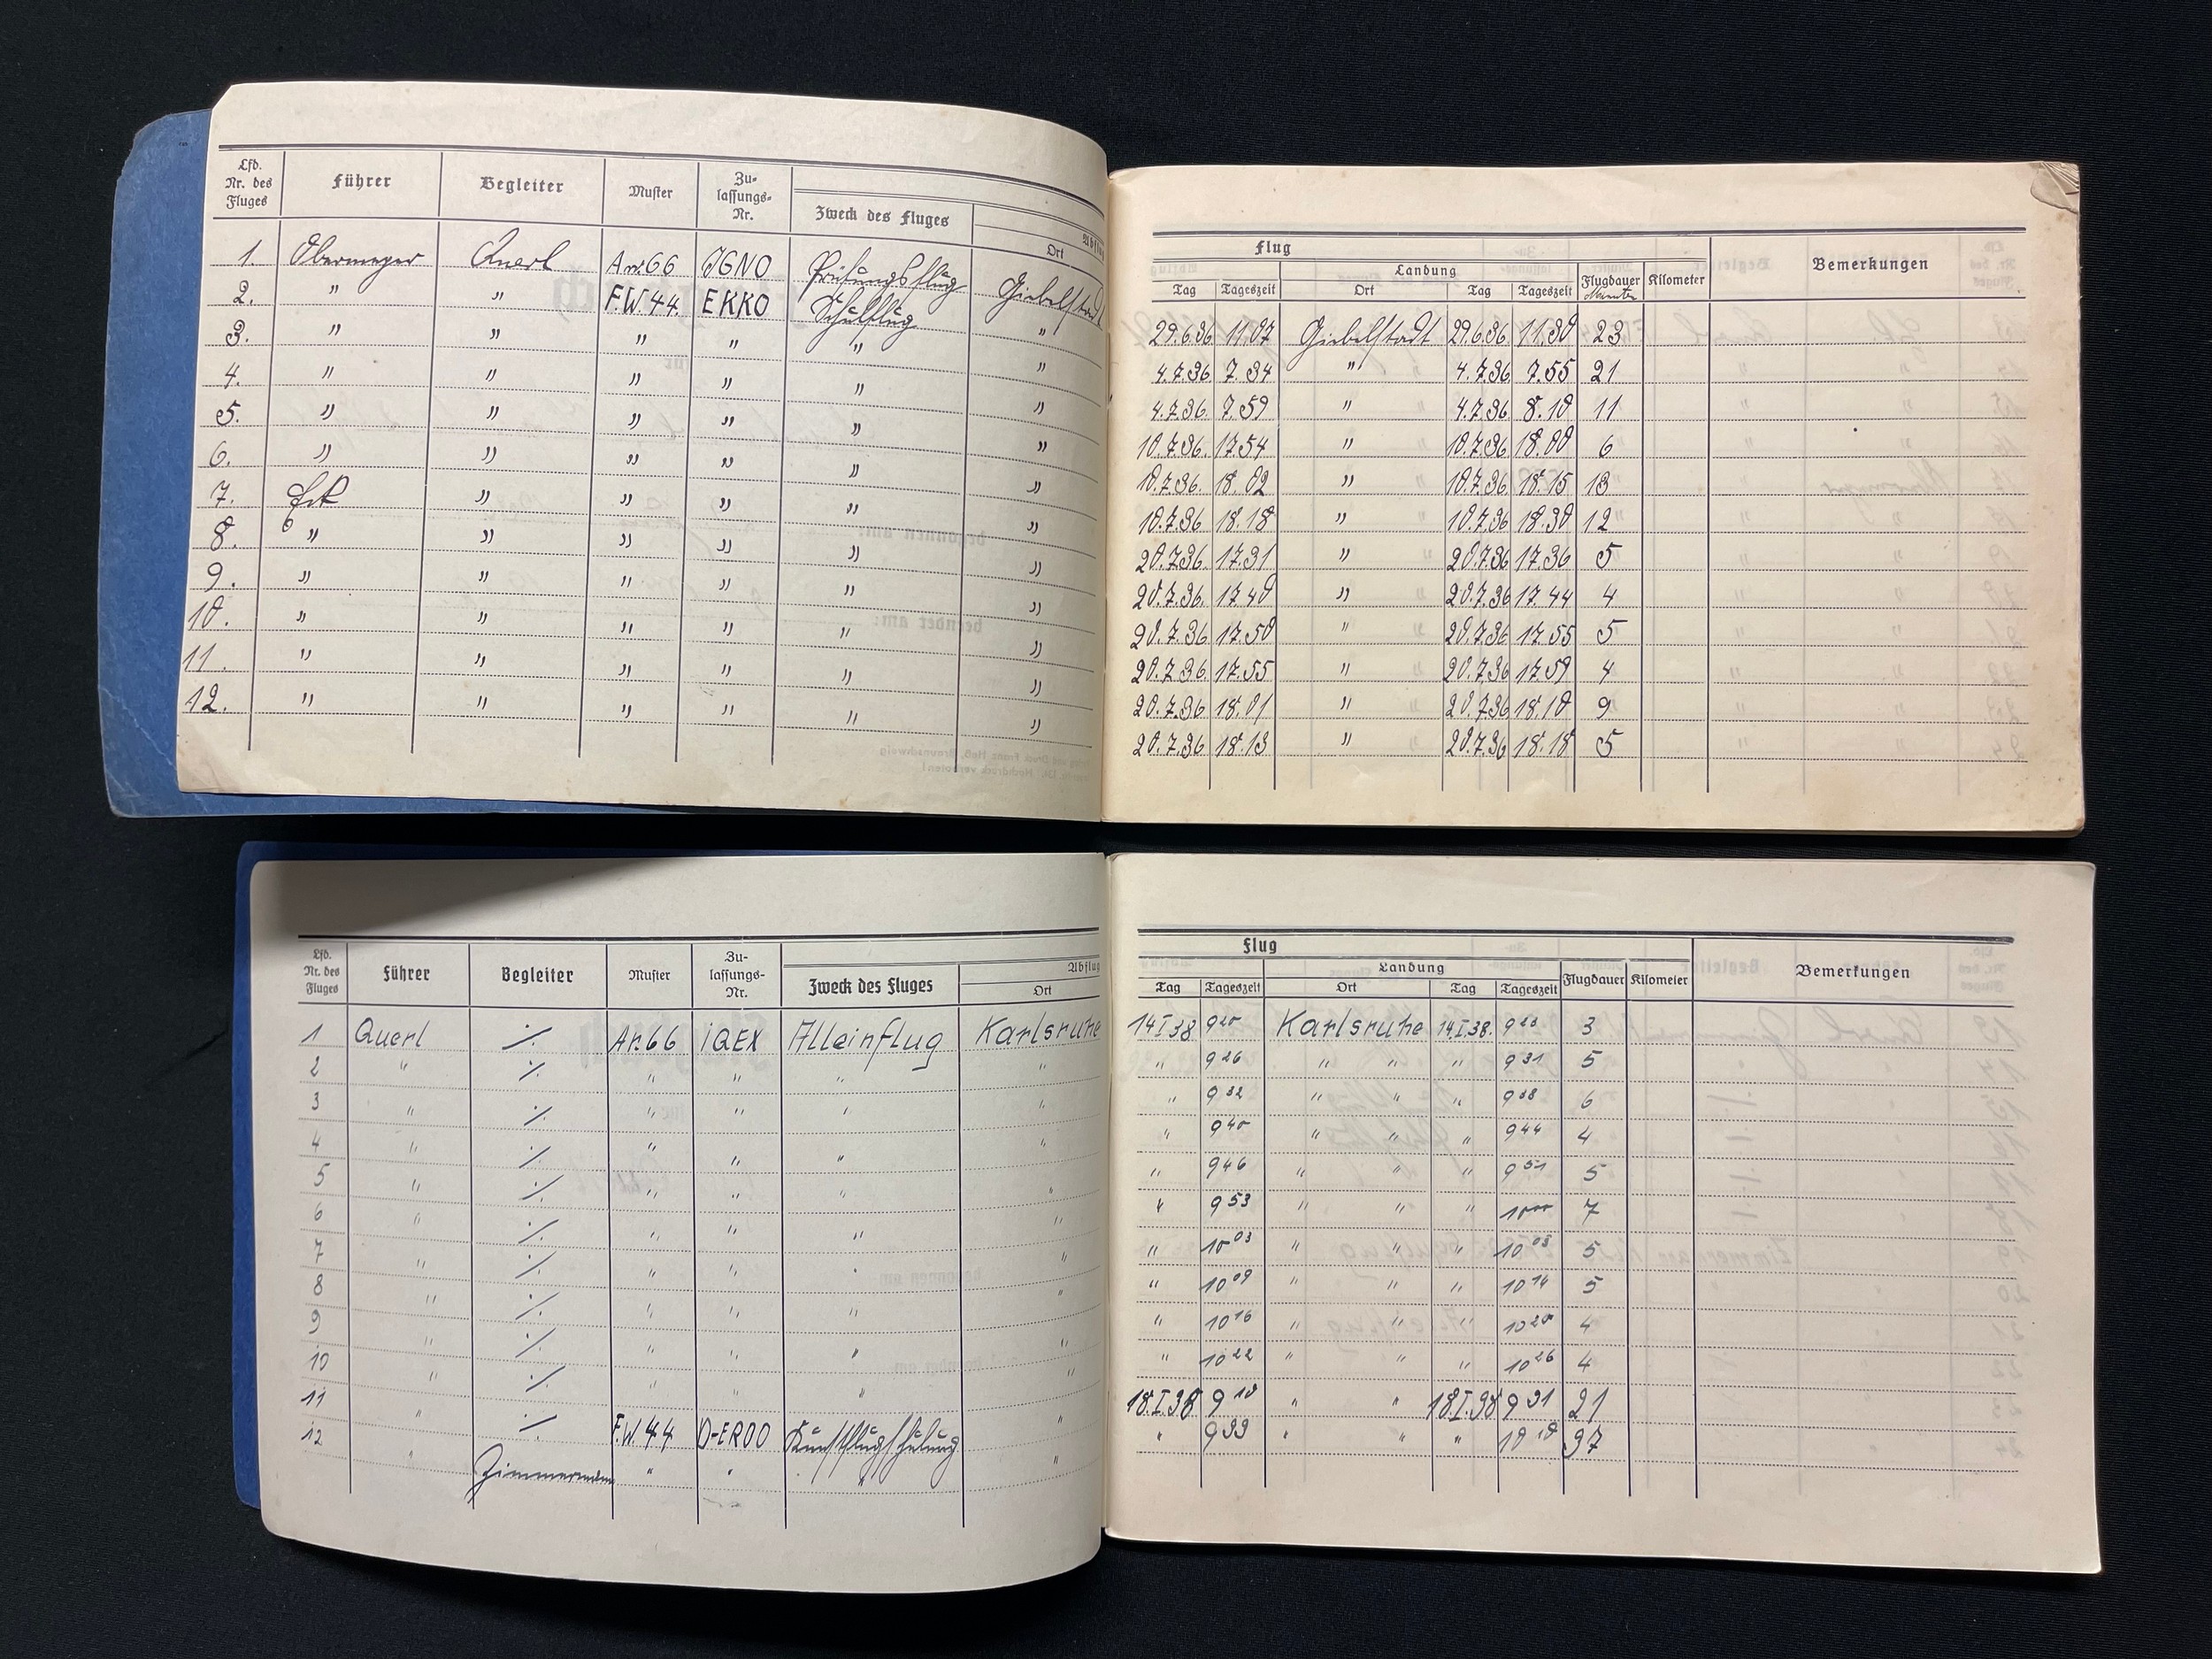 Lfd. Nr. des Fluges Führer Begleiter Muster Zu-lassungs-Nr. Zweck des Fluges Abflug Ort
1. Obermeyer Querl Ar.66 JGNO Prüfungsflug Giebelstadt
2. " " F.W.44. EKKO Schulflug "
3. " " " " " "
4. " " " " " "
5. " " " " " "
6. " " " " " "
7. Eck " " " " "
8. " " " " " "
9. " " " " " "
10. " " " " " "
11. " " " " " "
12. " " " " " "
Flug
Landung
Tag Tageszeit Ort Tag Tageszeit Flugdauer Minuten Kilometer Bemerkungen
29.6.36 11.07 Giebelstadt 29.6.36 11.30 23
4.7.36 7.34 " 4.7.36 7.55 21
4.7.36. 7.59 " 4.7.36. 8.10 11
10.7.36. 17.54 " 10.7.36 18.00 6
10.7.36. 18.02 " 10.7.36 18.15 13
10.7.36 18.18 " 10.7.36 18.30 12
20.7.36 17.31 " 20.7.36 17.36 5
20.7.36. 17.40 " 20.7.36 17.44 4
20.7.36 17.50 " 20.7.36 17.55 5
20.7.36. 17.55 " 20.7.36 17.59 4
20.7.36 18.01 " 20.7.36 18.10 9
20.7.36 18.13 " 20.7.36 18.18 5
Lfd. Nr. des Fluges Führer Begleiter Muster Zu-lassungs-Nr. Zweck des Fluges Abflug Ort
1 Querl ·/. Ar.66 iQEX Alleinflug Karlsruhe
2 " ·/. " " " "
3 " ·/. " " " "
4 " ·/. " " " "
5 " ·/. " " " "
6 " ·/. " " " "
7 " ·/. " " " "
8 " ·/. " " " "
9 " ·/. " " " "
10 " ·/. " " " "
11 " ·/. F.W.44 D-EROO Kunstflugschulung "
12 " Zimmermann " " " "
Flug
Landung
Tag Tageszeit Ort Tag Tageszeit Flugdauer Kilometer Bemerkungen
14.I.38 9 20 Karlsruhe 14.I.38. 9 23 3
" 9 26 " " " 9 31 5
" 9 32 " " " 9 38 6
" 9 40 " " " 9 44 4
" 9 46 " " " 9 51 5
" 9 53 " " " 10 00 7
" 10 03 " " " 10 08 5
" 10 09 " " " 10 14 5
" 10 16 " " " 10 20 4
" 10 22 " " " 10 26 4
18.I.38 9 10 " " 18.I.38 9 31 21
" 9 33 " " " 10 10 37